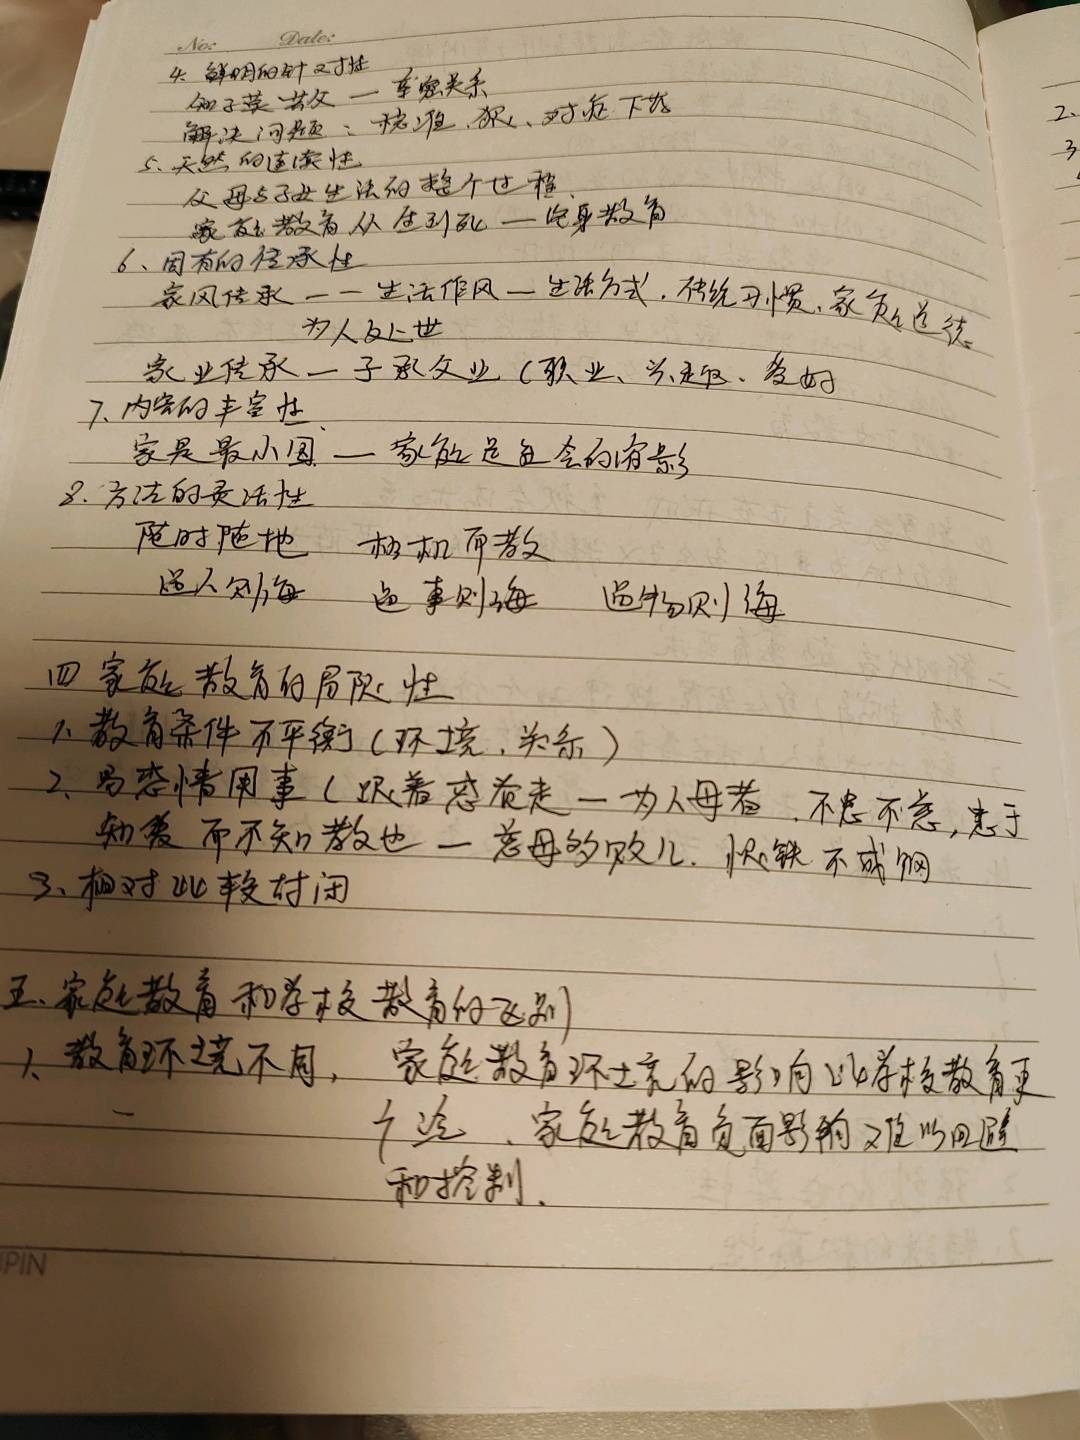 No: Date:
4. 鲜明的针对性
知子莫若父 — 亲密关系
解决问题：稳、准、狠、对症下药
5、天然的连续性
父母与子女生活的整个过程、
家庭教育从生到死 — 终身教育
6、固有的传承性
家风传承 — — 生活作风 — 生活方式、传统习惯、家庭道德
为人处世
家业传承 — 子承父业（职业、兴趣、爱好
7、内容的丰富性
家是最小国 — 家庭是社会的缩影
8、方法的灵活性
随时随地 相机而教
遇人则诲 遇事则诲 遇物则诲
四 家庭教育的局限性
1、教育条件不平衡（环境、关系）
2、易感情用事（跟着感觉走 — 为人母者、不患不慈，患于
知爱而不知教也 — 慈母多败儿、恨铁不成钢
3、相对比较封闭
五、家庭教育和学校教育的区别
1、教育环境不同， 家庭教育环境的影响比学校教育更
广泛、家庭教育负面影响难以回避
和控制、
PIN
2.
3